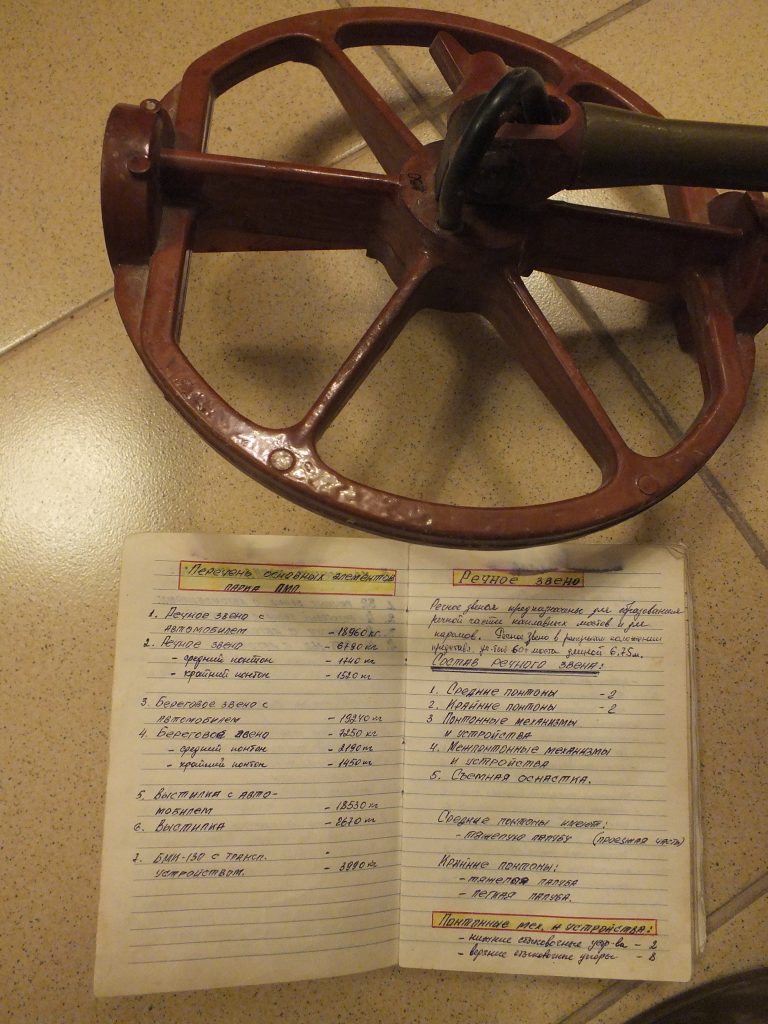 Перечень основных элементов
парка ПМП.
1. Речное звено с
автомобилем - 18960 кг.
2. Речное звено - 6790 кг
- средний понтон - 1740 кг
- крайний понтон - 1520 кг
3. Береговое звено с
автомобилем - 19240 кг
4. Береговое звено - 7250 кг
- средний понтон - 2190 кг
- крайний понтон - 1450 кг
5. Выстилка с авто-
мобилем - 18530 кг
6. Выстилка - 2670 кг
7. БМК-130 с трансп.
устройством. - 3990 кг
Речное звено
Речное звенья предназначены для образования
речной части наплавных мостов и для
паромов. звено в положении
60т моста длиной 6,75 м.
Состав речного звена:
1. Средние понтоны - 2
2. Крайние понтоны - 2
3 Понтонные механизмы
и устройства
4. Межпонтонные механизмы
и устройства
5. Съемная оснастка.
Средние понтоны имеют:
- тяжелую палубу (проезжая часть)
Крайние понтоны:
- тяжелая палуба
- легкая палуба.
Понтонные мех. и устройства:
- нижние стыковочные устр-ва - 2
- верхние стыковочные упоры - 8